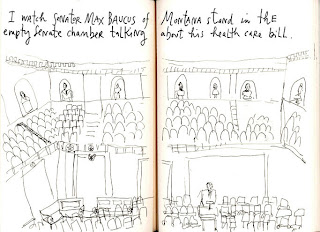 I watch Senator MAX BAUCUS of Montana stand in the
empty Senate chamber talking about his health care bill.